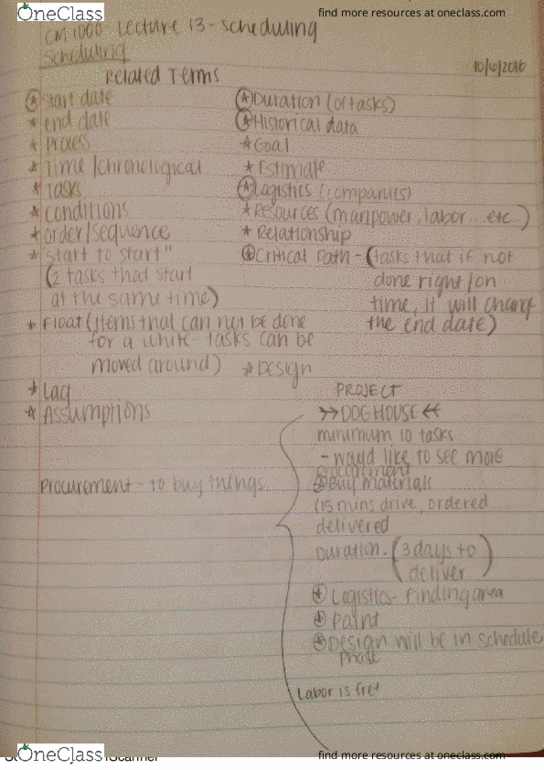 OneClass
find more resources at oneclass.com
CM 1000 Lecture 13 - scheduling
Scheduling
Related Terms
10/6/2016
start date
end date
Process
Time /chronological
Tasks
conditions
order/sequence
"start to start"
(2 tasks that start
at the same time)
Float (items that can not be done
for a while - tasks can be
moved around)
Lag
Assumptions
Duration (of tasks)
Historical data
Goal
Estimate
Logistics (companies)
Resources (manpower, labor... etc..)
Relationship
Critical Path - (tasks that if not
done right/on
time, it will change
the end date)
Design
Procurement - to buy things
PROJECT
>> DOGHOUSE <<
minimum 10 tasks
- would like to see more
procurement
Buy materials
(15 mins drive, ordered
delivered
Duration - (3 days to
deliver)
Logistics - finding area
Paint
Design will be in schedule
Phase
Labor is free
OneClass
Scanner
find more resources at oneclass.com